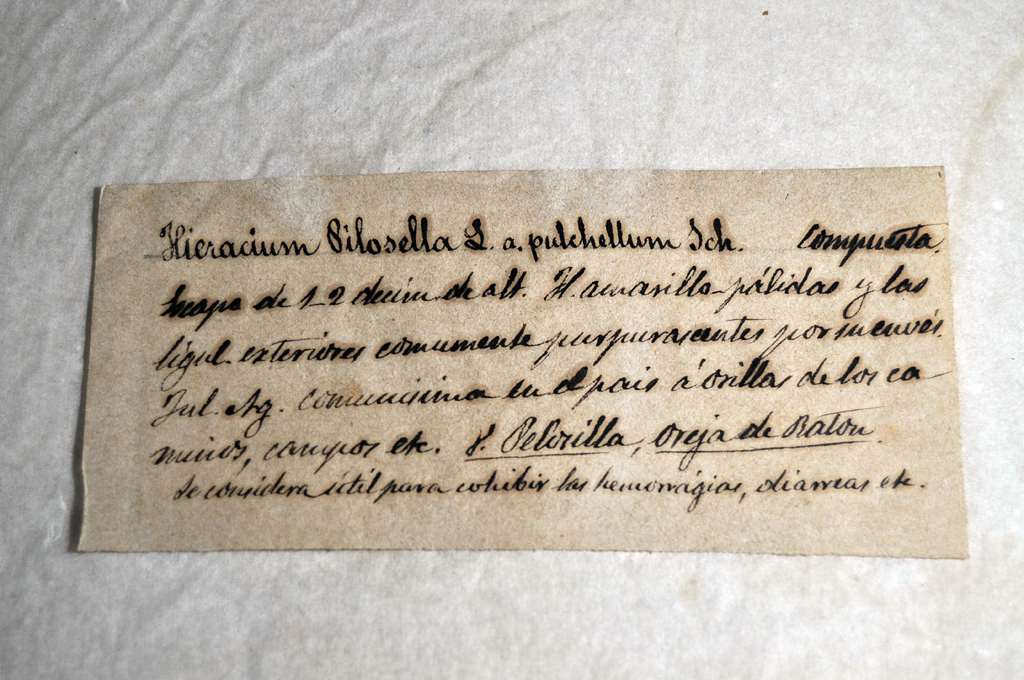 Hieracium Pilosella L. a. pulchellum Sch. Compuesta.
Escapo de 1-2 decím. de alt. Fl. amarillo-pálidas y las
lígul. exteriores comunmente purpurascentes por su envés.
Jul. Ag. comunísima en el pais á orillas de los ca
minos, campos etc. V. Pelosilla, Oreja de Raton.
Se considera útil para cohibir las hemorrágias, diarreas etc.